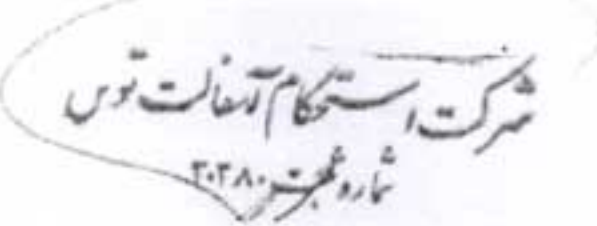 شرکت استحکام آسفالت توس
شماره ثبت ۲۰۲۸۰